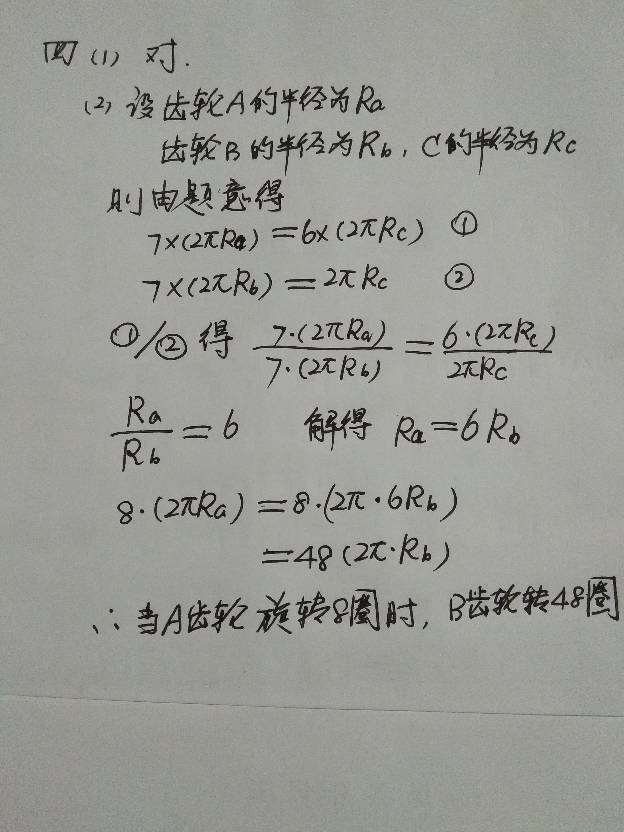 四(1) 对.
(2) 设齿轮A的半径为Ra
齿轮B的半径为Rb, C的半径为Rc
则由题意得
7×(2πRa)=6×(2πRc) ①
7×(2πRb)=2πRc ②
①/② 得 7·(2πRa)/7·(2πRb) = 6·(2πRc)/2πRc
Ra/Rb=6 解得 Ra=6Rb
8·(2πRa)=8·(2π·6Rb)
=48(2π·Rb)
∴当A齿轮旋转8圈时, B齿轮转48圈